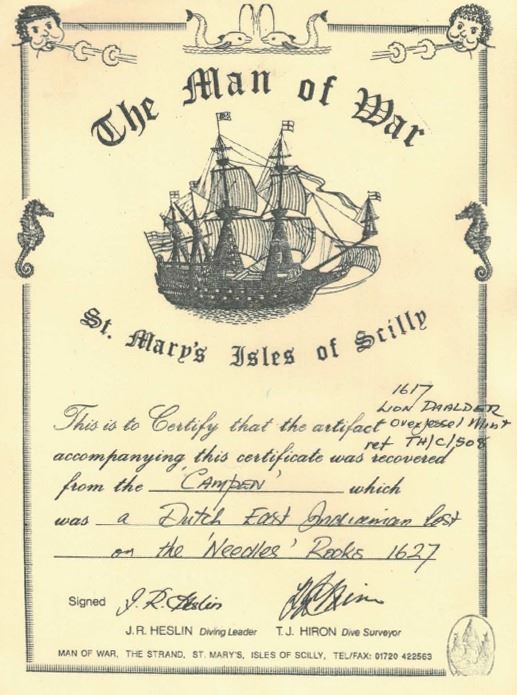 The Man of War
St. Mary's Isles of Scilly
1617
LION DAALDER
Overjessel Mint
ref TH/C/508
This is to Certify that the artifact
accompanying this certificate was recovered
from the 'CAMPEN' which
was a Dutch East Indiaman lost
on the 'Needles' Rocks 1627
Signed J.R. Heslin T.J. Hiron
J.R. HESLIN Diving Leader T.J. HIRON Dive Surveyor
MAN OF WAR, THE STRAND, ST. MARY'S, ISLES OF SCILLY, TEL/FAX: 01720 422563